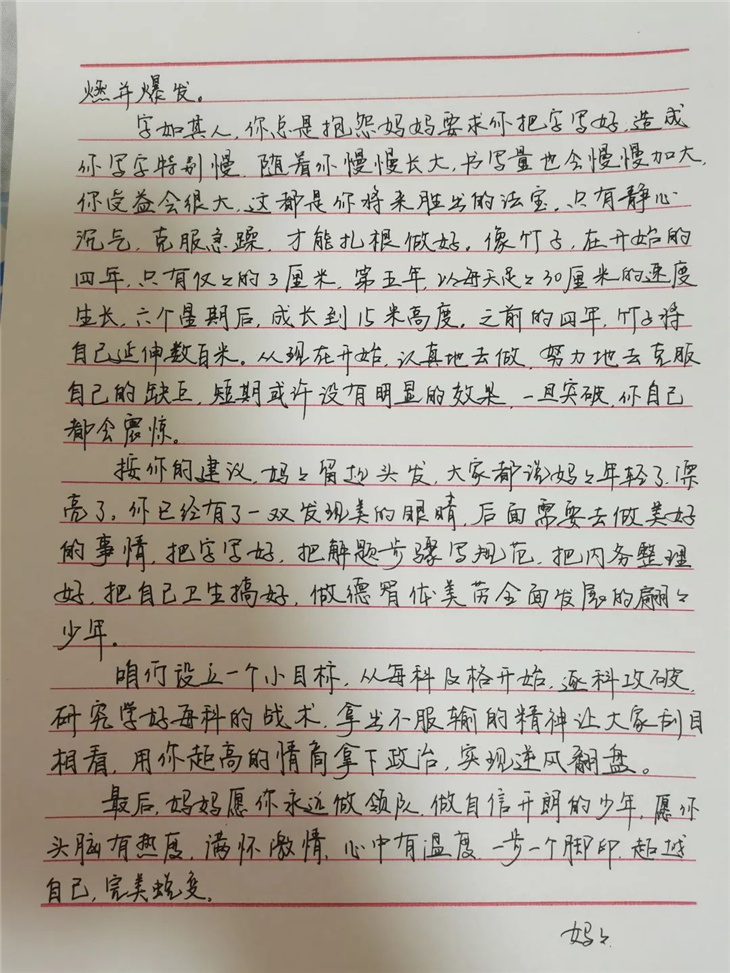 燃并爆发。
字如其人,你总是抱怨妈妈要求你把字写好,造成
你写字特别慢,随着你慢慢长大,书写量也会慢慢加大,
你受益会很大,这都是你将来胜出的法宝,只有静心
沉气,克服急躁,才能扎根做好。像竹子,在开始的
四年,只有仅々的3厘米,第五年,以每天足々30厘米的速度
生长,六个星期后,成长到15米高度。之前的四年,竹子将
自己延伸数百米。从现在开始,认真地去做,努力地去克服
自己的缺点,短期或许没有明显的效果,一旦突破,你自己
都会震惊。
按你的建议,妈々留起头发,大家都说妈々年轻了,漂
亮了。你已经有了一双发现美的眼睛,后面需要去做美好
的事情,把字写好,把解题步骤写规范,把内务整理
好,把自己卫生搞好,做德智体美劳全面发展的翩々
少年。
咱们设立一个小目标,从每科及格开始,逐科攻破,
研究学好每科的战术,拿出不服输的精神让大家刮目
相看,用你超高的情商拿下政治,实现逆风翻盘。
最后,妈妈愿你永远做领队,做自信开朗的少年,愿你
头脑有热度,满怀激情,心中有温度,一步一个脚印,超越
自己,完美蜕变。
妈々